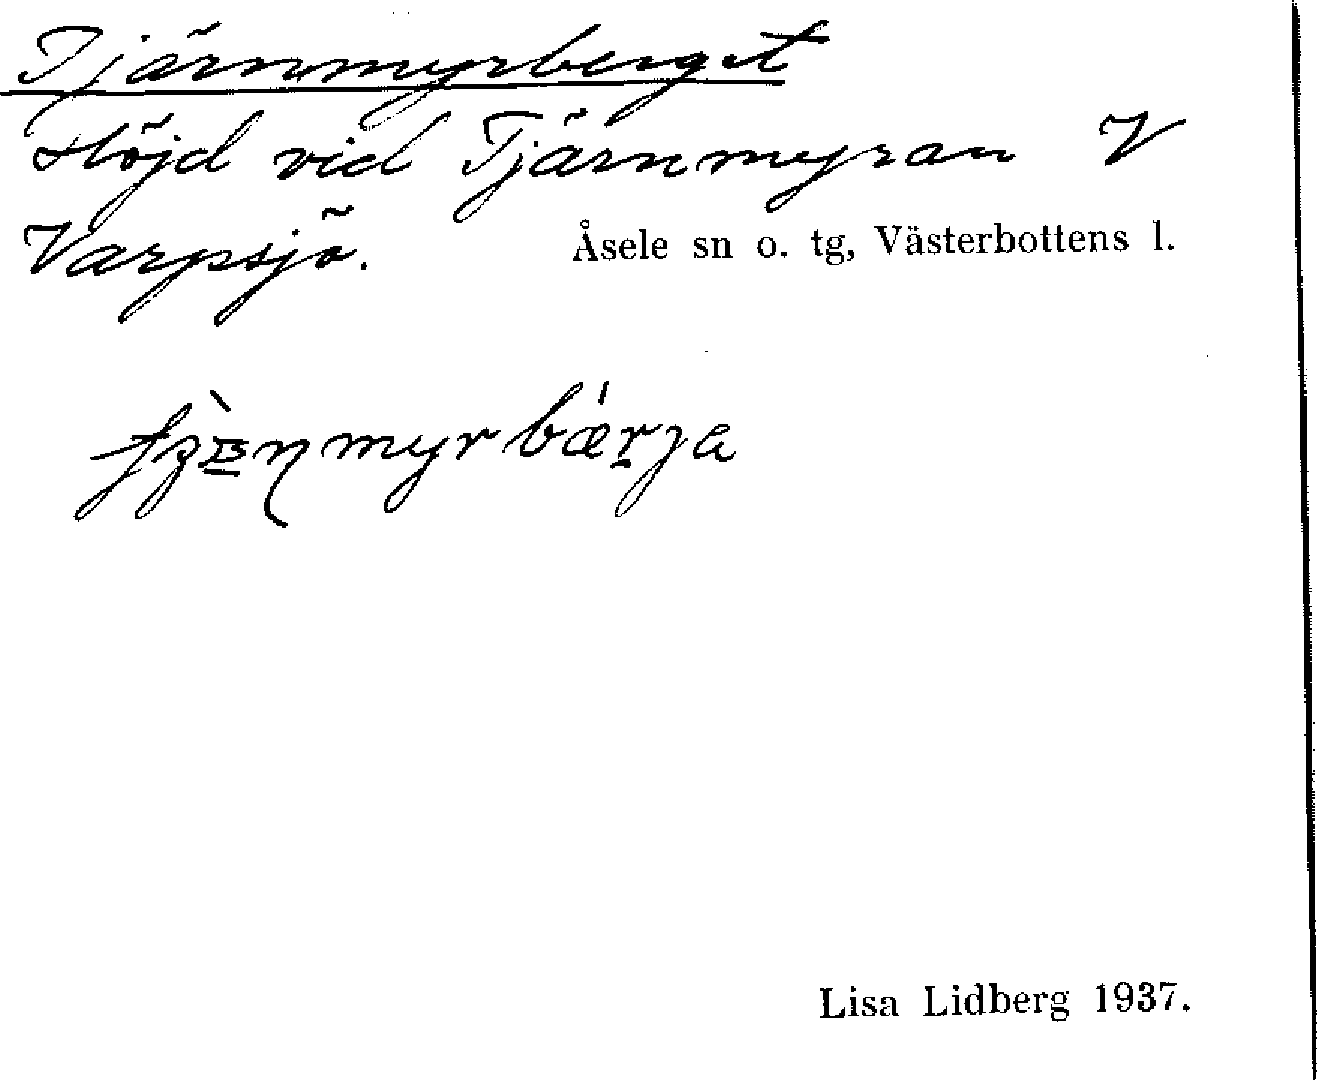 Tjärnmyrberget
Höjd vid Tjärnmyran V
Varpsjö. Åsele sn o. tg, Västerbottens l.
Lisa Lidberg 1937.